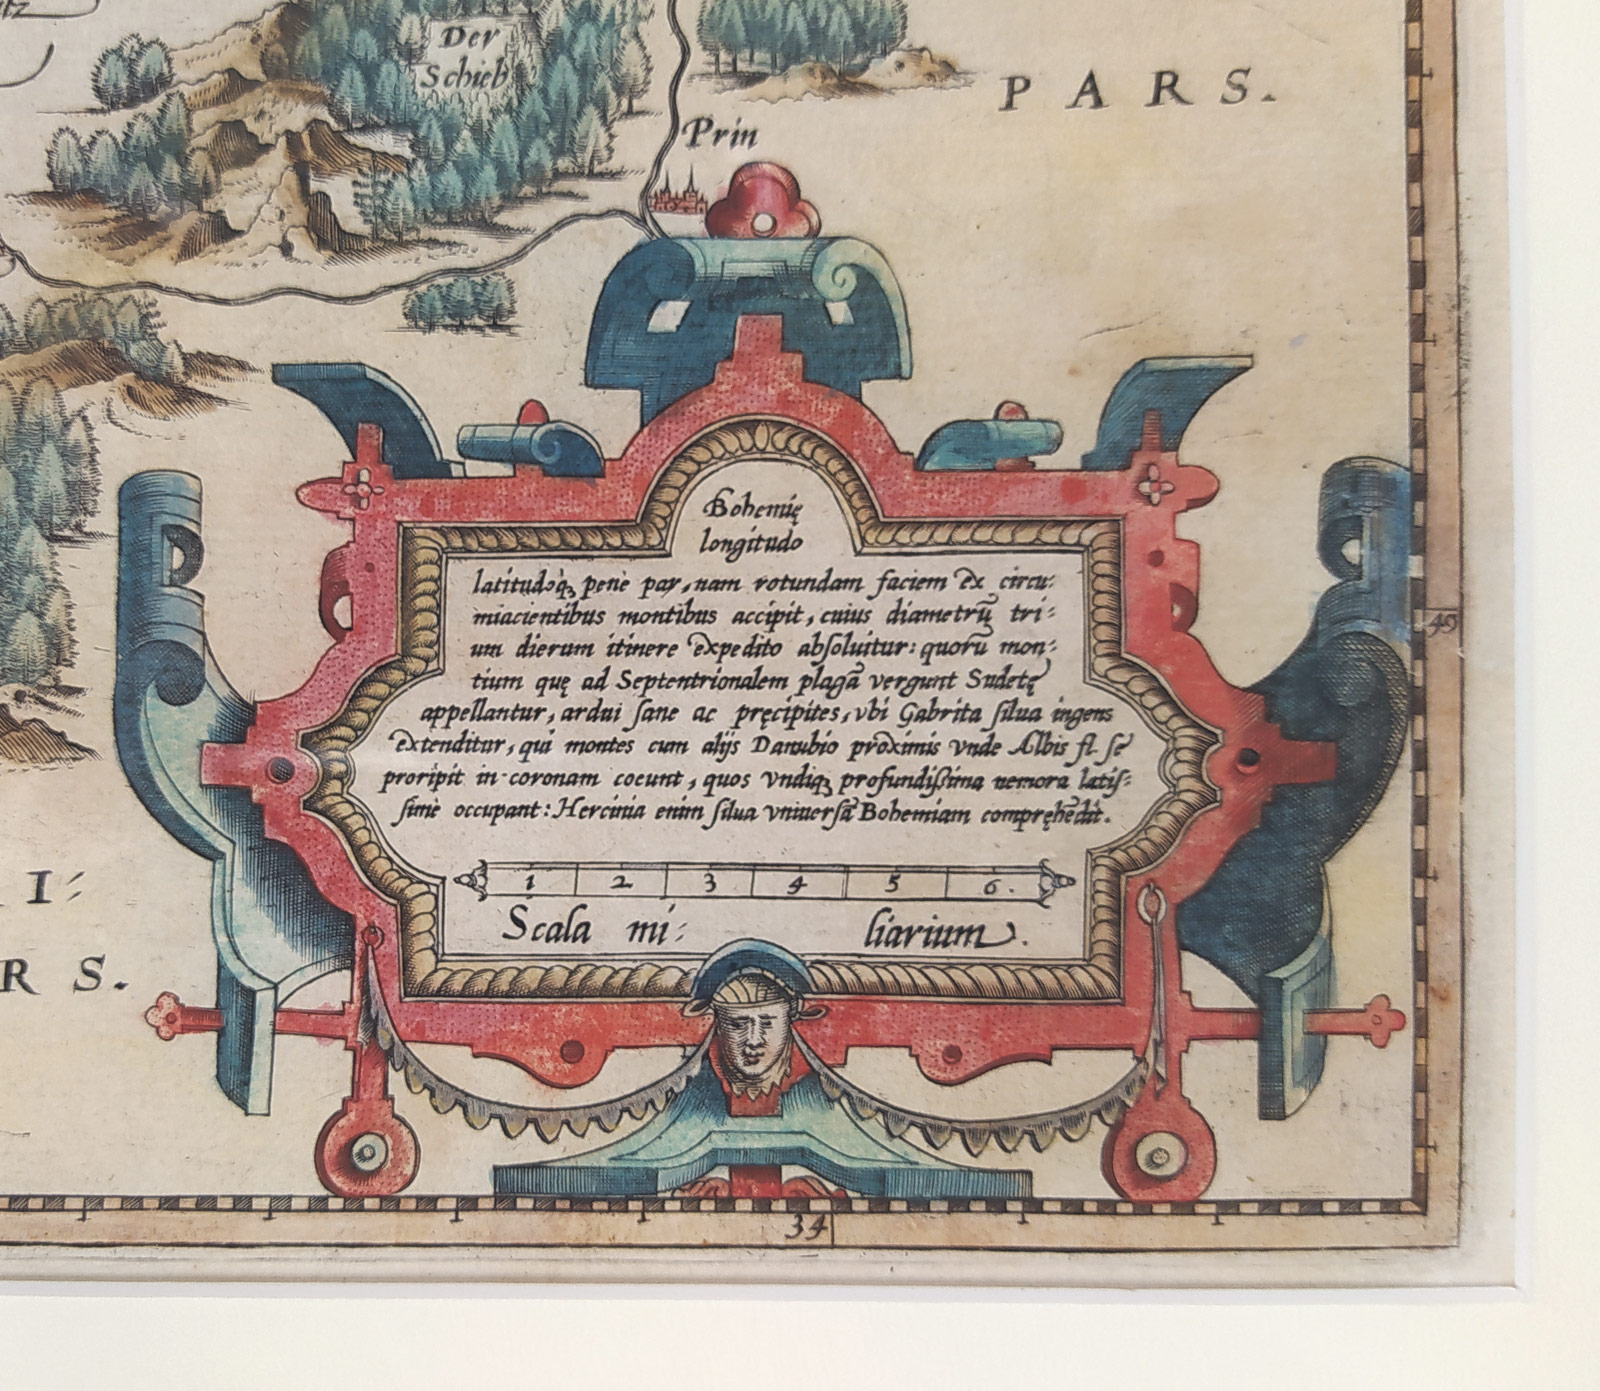 Der
Schieb
PARS.
Prin
Bohemię
longitudo
latitudoq́ꝫ penè par, nam rotundam faciem ex circu:
miacientibus montibus accipit, cuius diametrũ tri:
um dierum itinere expedito abſoluitur: quorũ mon:
tium quę ad Septentrionalem plagã vergunt Sudetę
appellantur, ardui ſane ac pręcipites, vbi Gabrita ſilua ingens
extenditur, qui montes cum alijs Danubio proximis vnde Albis fl. ſe
proripit in coronam coeunt, quos vndiqꝫ profundißima nemora latiſ:
ſimè occupant: Hercinia enim ſilua vniuerſã Bohemiam compręhẽdit.
1 2 3 4 5 6.
Scala mi: liarium.
I:
RS.
49
34